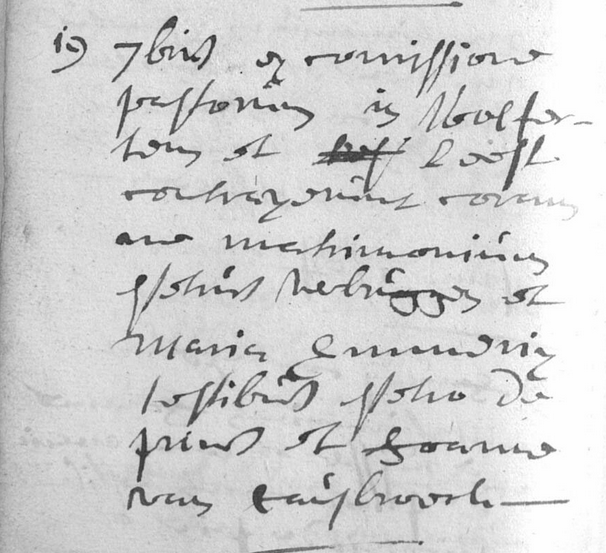 19 7bris ex comissione
pastorum in Wolfer-
tem et Leest
contraxerunt coram
me matrimonium
Petrus Verbruggen et
Maria
testibus Petro de
prins et Joanne
van